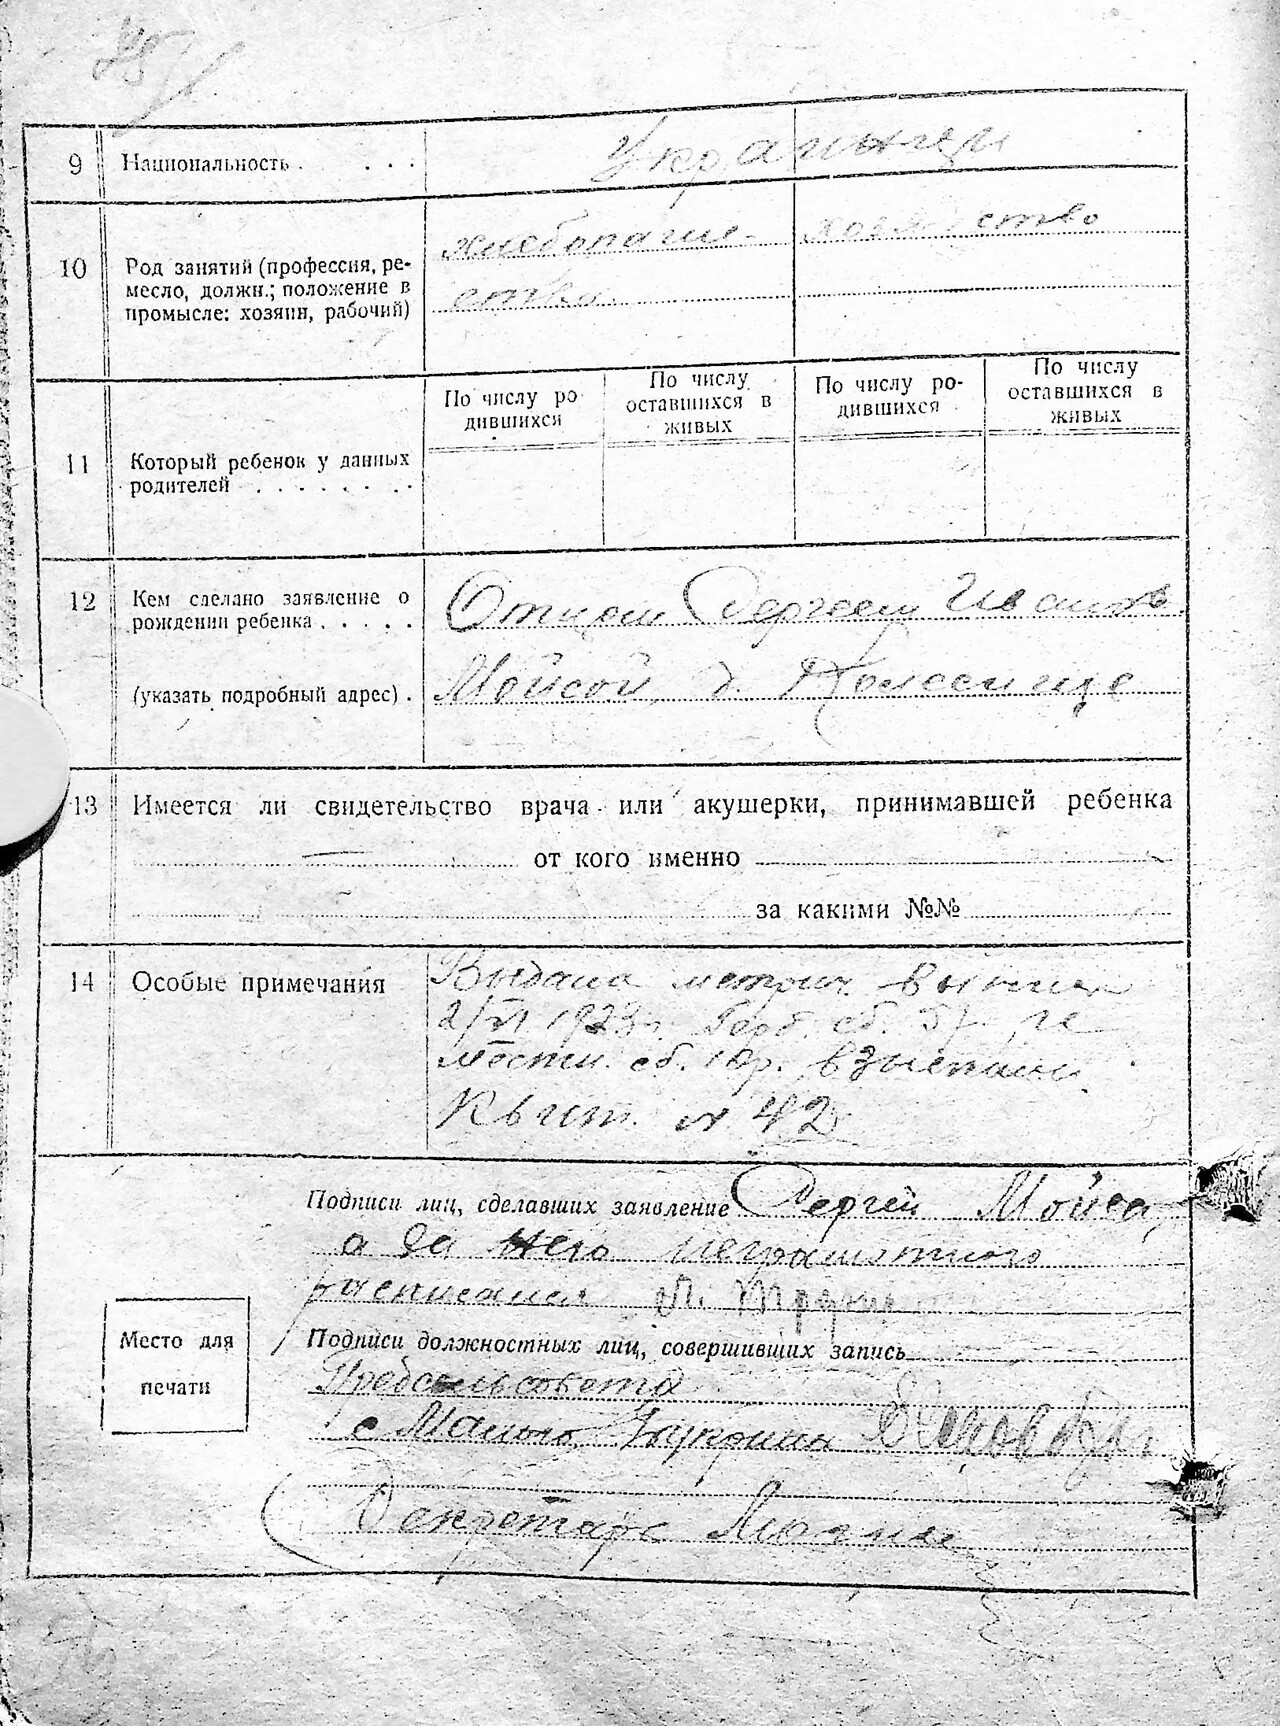 9 Национальность . . . . Украинцы
10 Род занятий (профессия, ре-
месло, должн.; положение в
промысле: хозяин, рабочий)
хлебопаше- хозяйство
ство
11 Который ребенок у данных
родителей . . . . . . . .
По числу ро
дившихся
По числу
оставшихся в
живых
По числу ро-
дившихся
По числу
оставшихся в
живых
12 Кем сделано заявление о
рождении ребенка . . . . .
(указать подробный адрес) .
Отцом Сергеем
Мойсой, д.
13 Имеется ли свидетельство врача или акушерки, принимавшей ребенка
от кого именно
за какими №№
14 Особые примечания
Выдана метрич.
2/VI 1923 г. Герб. сб.
местн. сб. 10р. взыскан
Квит. № 42
Подписи лиц, сделавших заявление Сергей Мойса,
а за него неграмотного
расписался
Подписи должностных лиц, совершивших запись
Предсельсовета
с Малого
Секретарь
Место для
печати